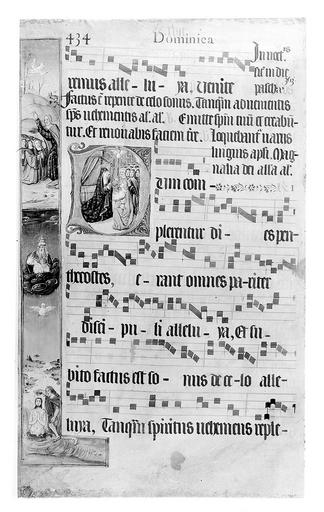 434 Dominica
remus alle - lu - ya. Venite
Factus e repente de celo sonus. Tanqm aduenientis
sps uehementis al'. al'. Emitte spm tuu et creabun
tur. Et renouabis faciem tre. Loquebant uariis
linguis apli. Mag
nalia dei alla al'.
Dum com -
plerentur di - es pen -
thecostes, e - rant omnes pa - riter
disci - pu - li allelu - ya, Et su -
bito factus est so - nus de ce - lo alle -
luya, Tanqm spiritus uehemens reple -